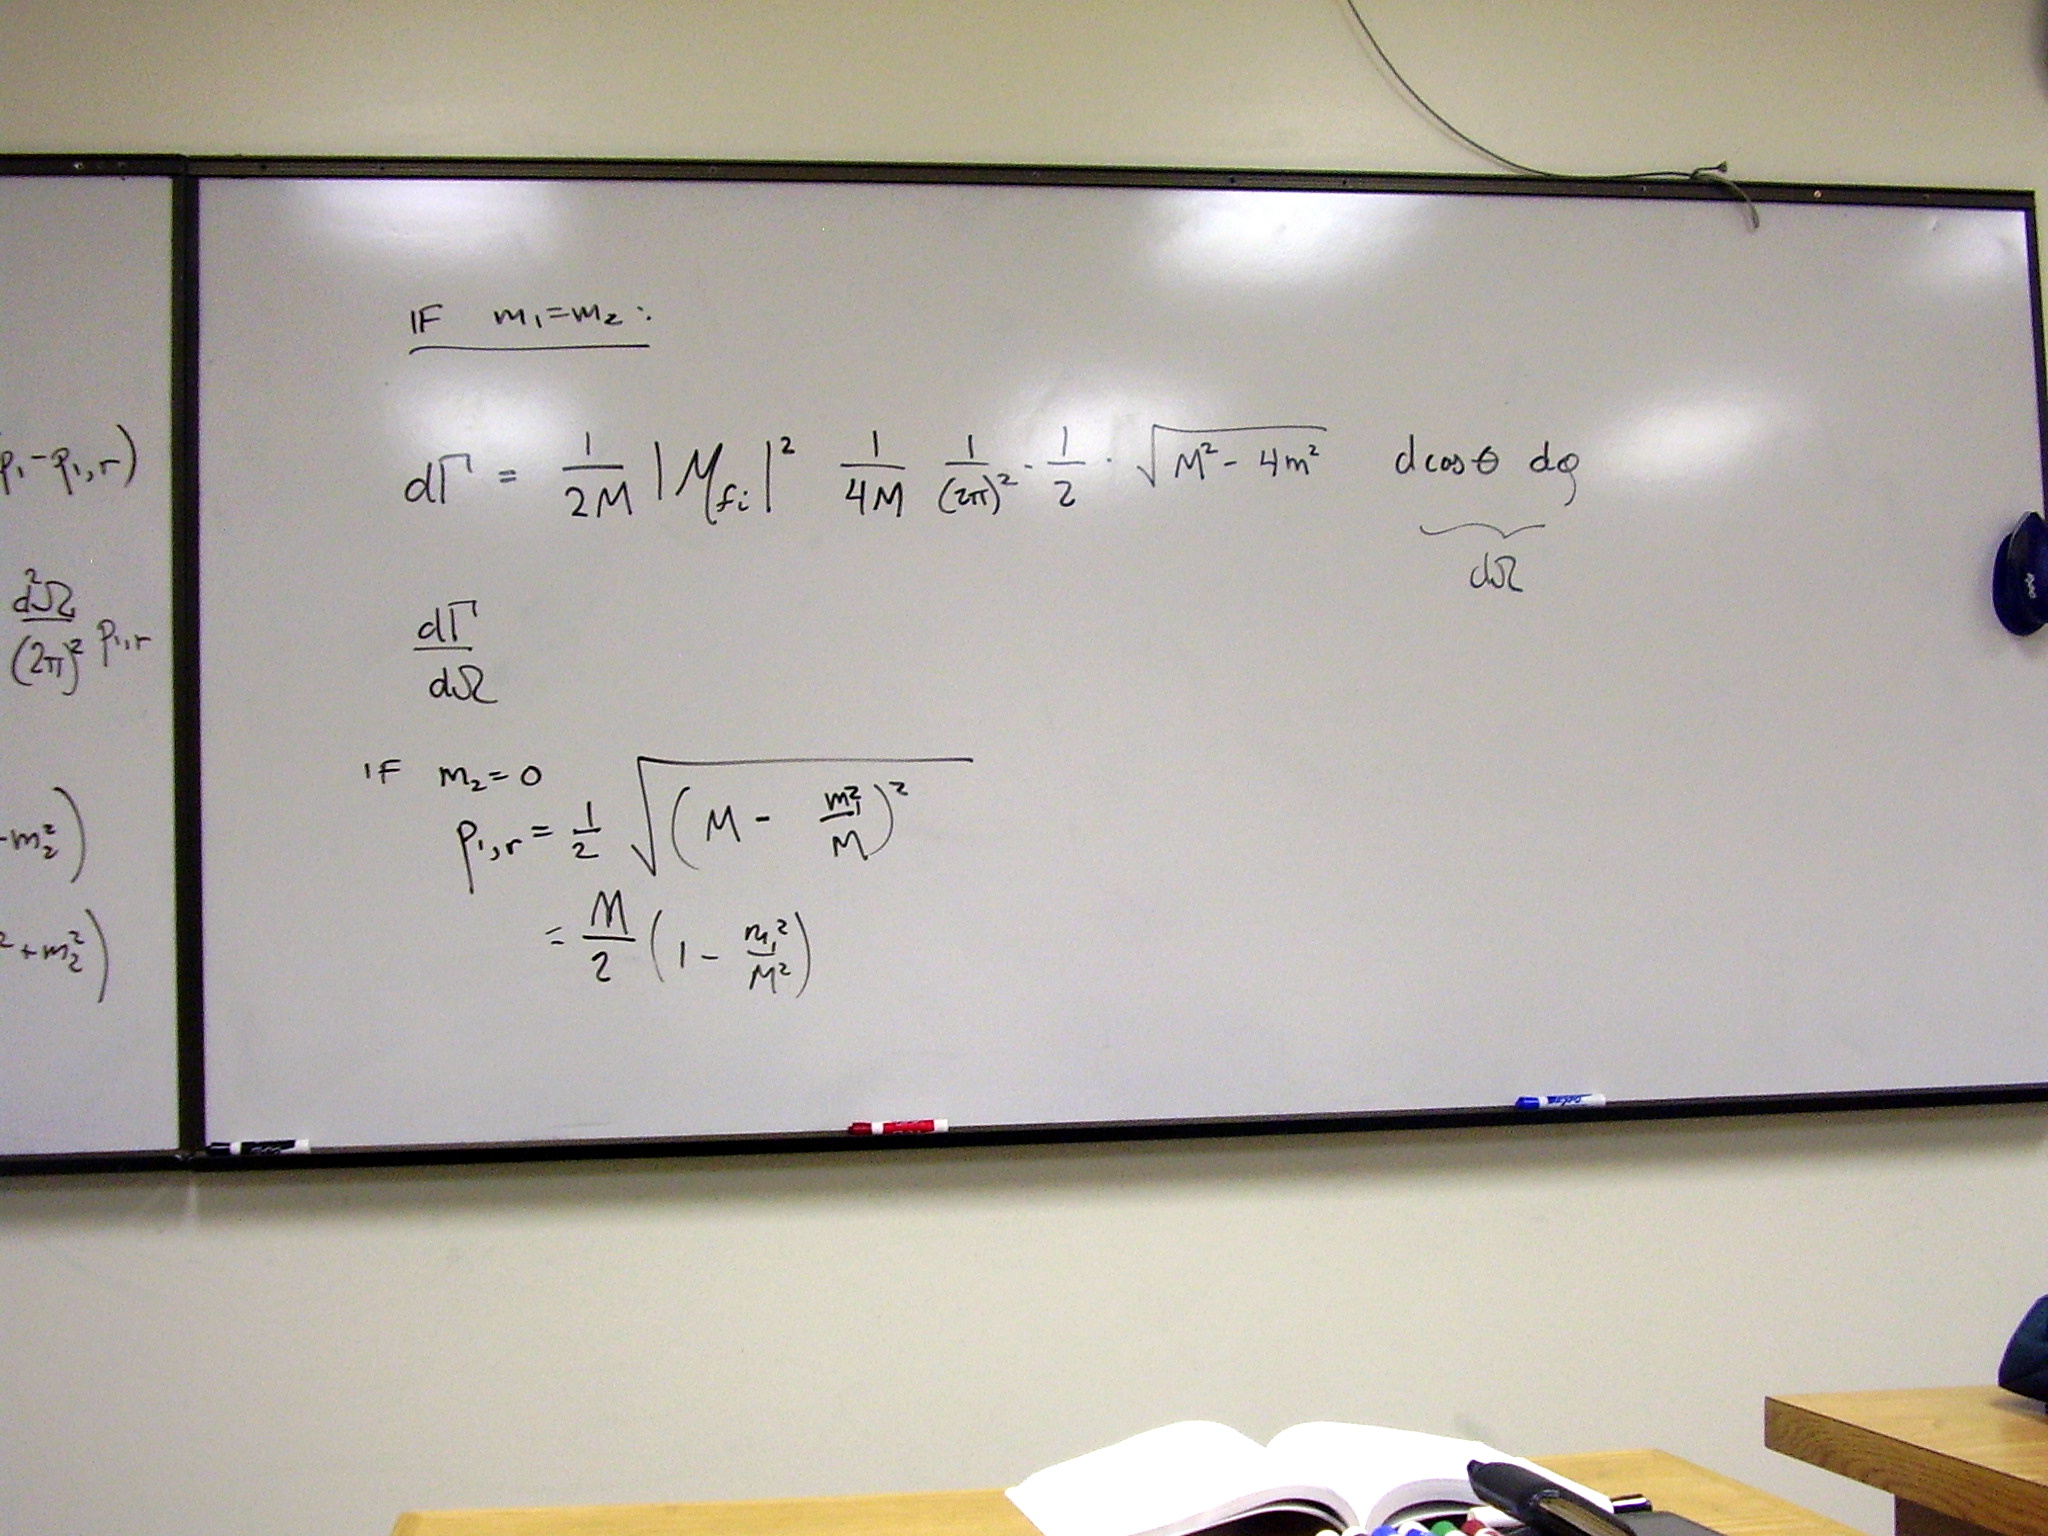 p₁ - p₁,r)
d²Ω / (2π)² p₁,r
-m₂²)
² + m₂²)
IF m₁=m₂:
dΓ = 1/2M |M_fi|² 1/4M 1/(2π)² · 1/2 · √(M² - 4m²) dcosθ dφ
dΩ
dΓ/dΩ
IF m₂=0
p₁,r = 1/2 √((M - m₁²/M)²)
= M/2 (1 - m₁²/M²)